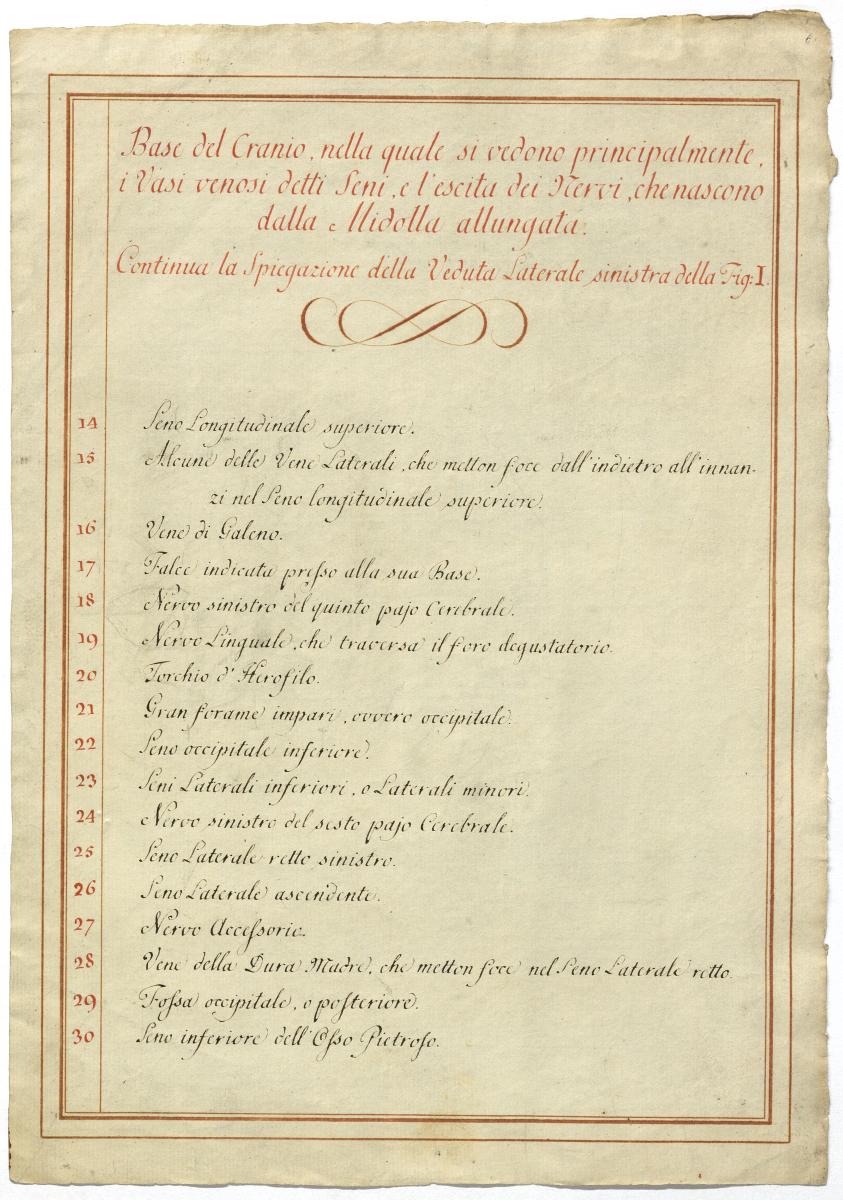 6
Base del Cranio, nella quale si vedono principalmente,
i Vasi venosi detti Seni, e l'escita dei Nervi, che nascono
dalla Midolla allungata.
Continua la Spiegazione della Veduta Laterale sinistra della Fig: I.
14 Seno Longitudinale superiore.
15 Alcune delle Vene Laterali, che metton foce dall'indietro all'innan-
zi nel Seno longitudinale superiore.
16 Vene di Galeno.
17 Falce indicata presso alla sua Base.
18 Nervo sinistro del quinto pajo Cerebrale.
19 Nervo Linguale, che traversa il foro degustatorio.
20 Torchio d'Herofilo.
21 Gran forame impari, ovvero occipitale.
22 Seno occipitale inferiore.
23 Seni Laterali inferiori, o Laterali minori.
24 Nervo sinistro del sesto pajo Cerebrale.
25 Seno Laterale retto sinistro.
26 Seno Laterale ascendente.
27 Nervo Accessorio.
28 Vene della Dura Madre, che metton foce nel Seno Laterale retto.
29 Fossa occipitale, o posteriore.
30 Seno inferiore dell'Osso Pietroso.